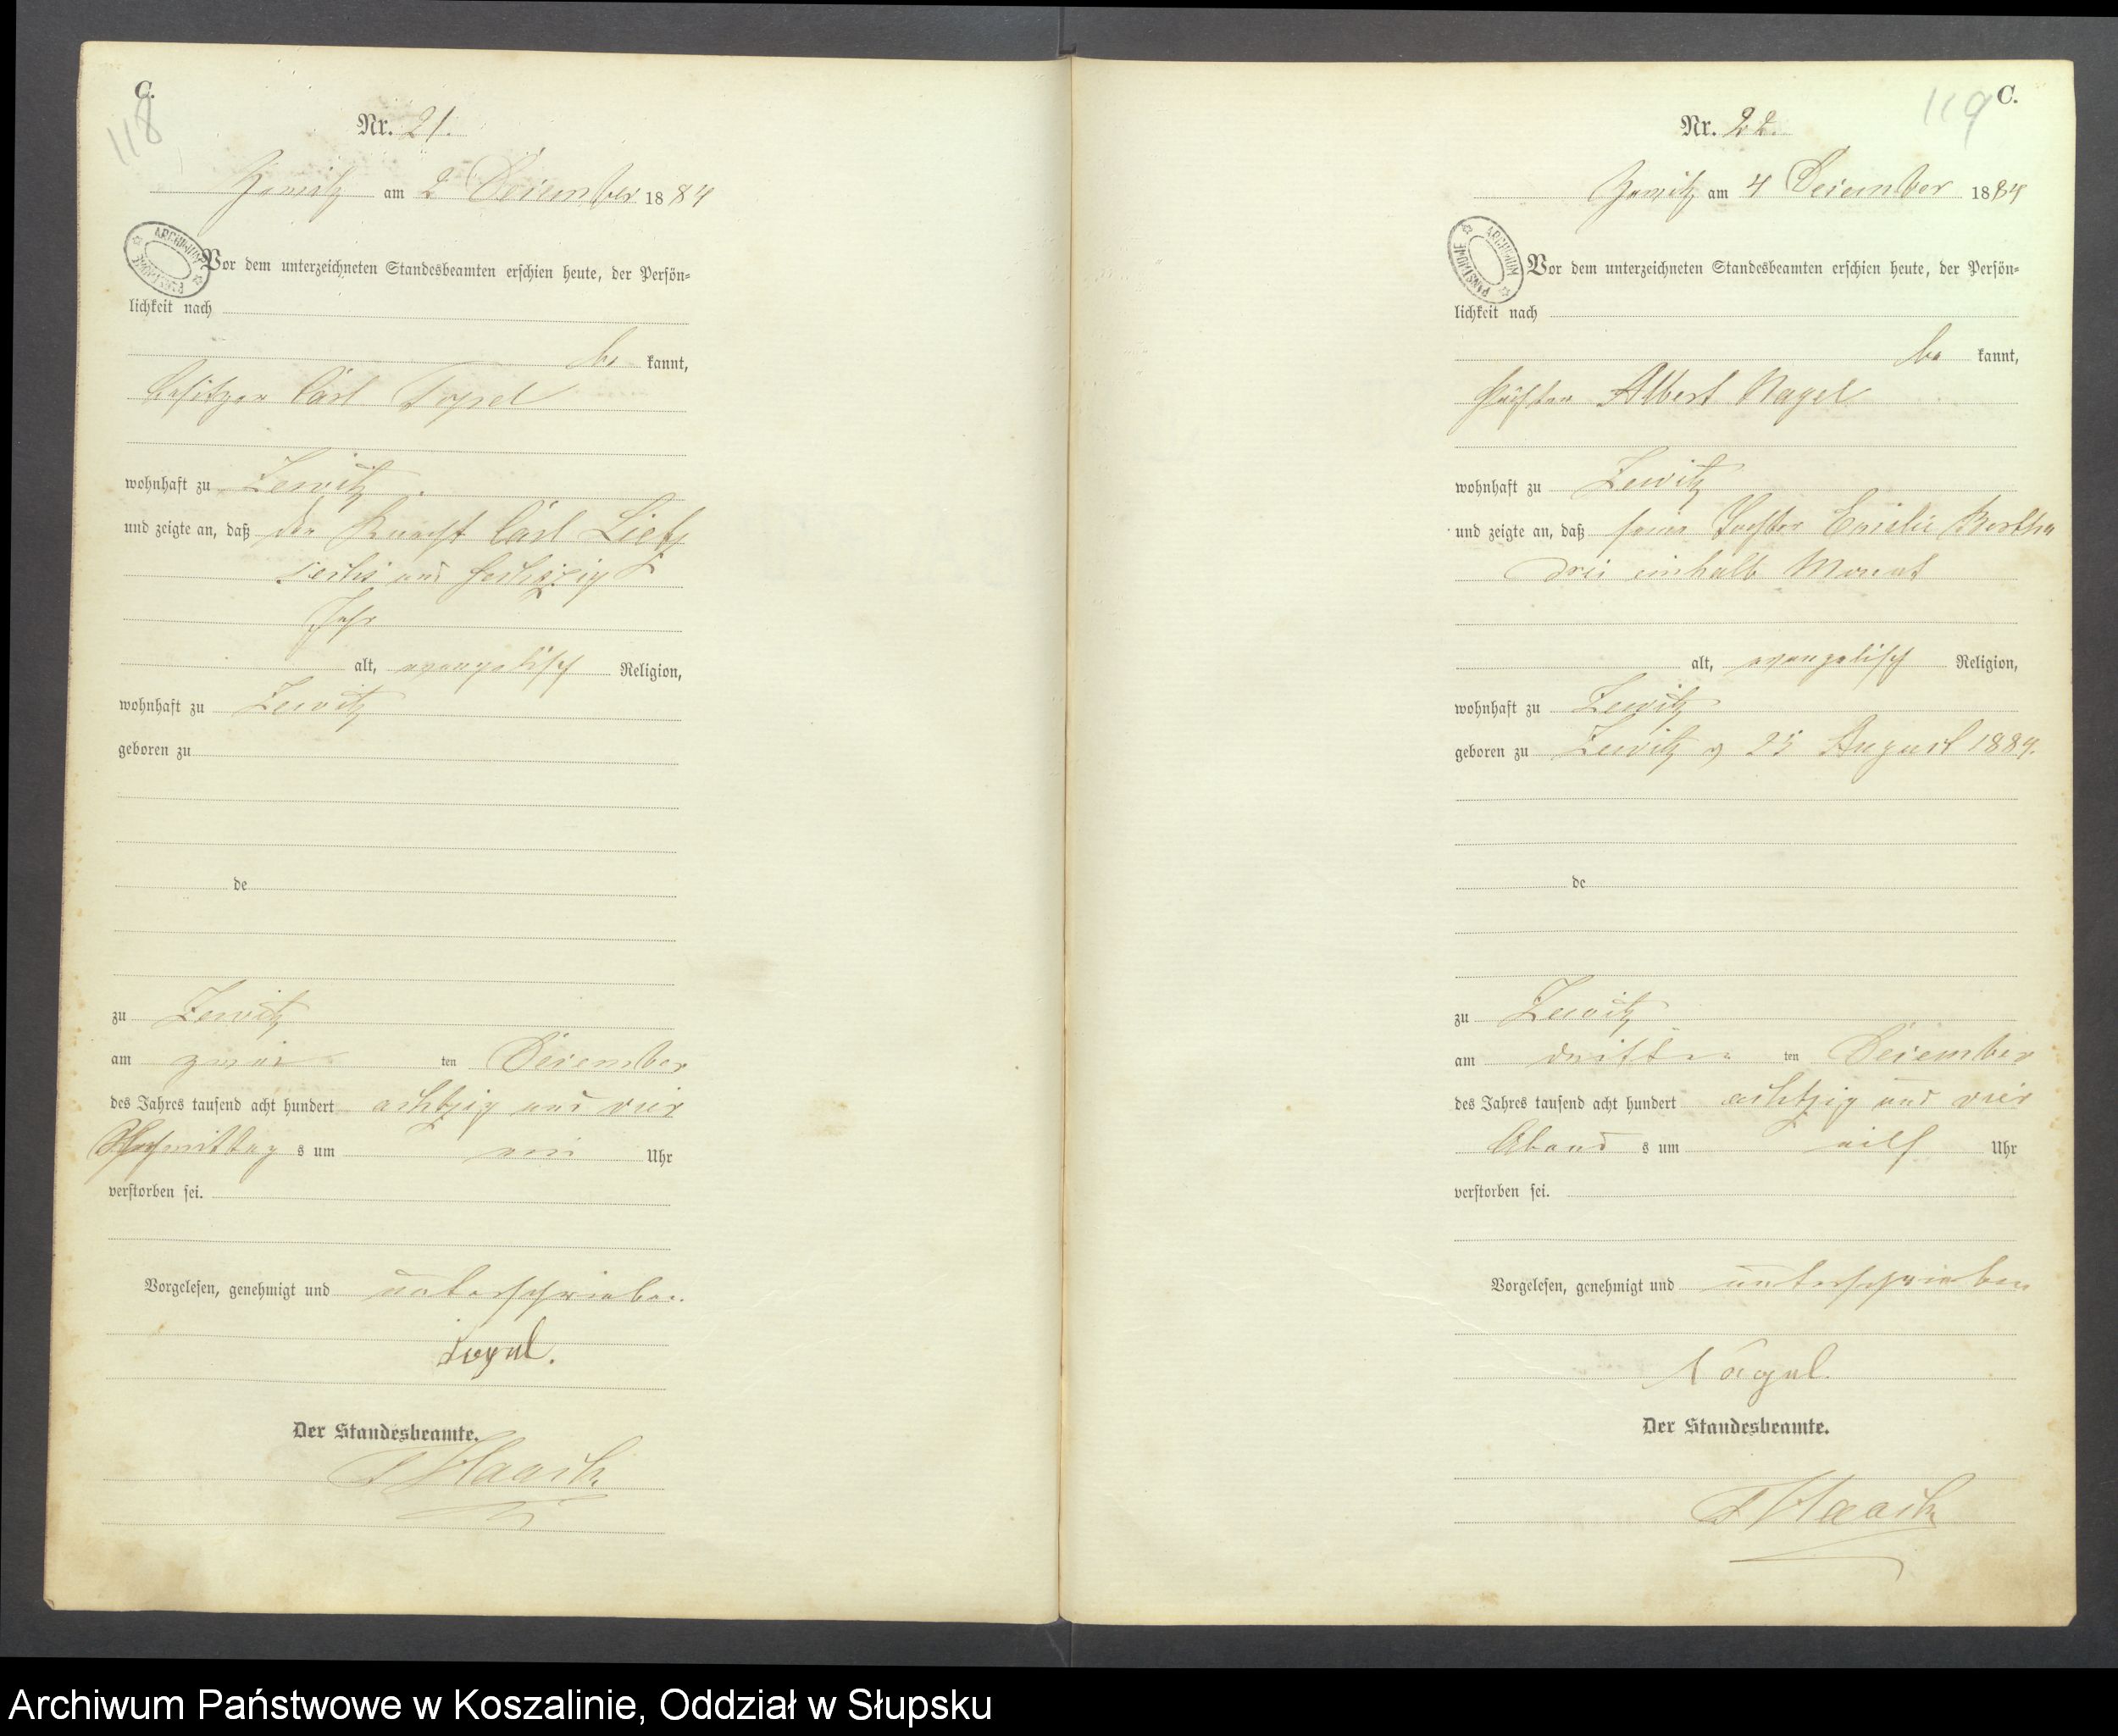 C.
118
Nr. 21.
am 2 Dezember 1884
Vor dem unterzeichneten Standesbeamten erschien heute, der Persön=
lichkeit nach
be kannt,
Besitzer Carl Topel
wohnhaft zu Zewitz
und zeigte an, daß der Knecht Carl Lietz
sechs und sechszig
Jahr
alt, evangelisch Religion,
wohnhaft zu Zewitz
geboren zu
de
zu Zewitz
am zwei ten Dezember
des Jahres tausend acht hundert achtzig und vier
mittag s um Uhr
verstorben sei.
Vorgelesen, genehmigt und unterschrieben.
Topel.
Der Standesbeamte.
Haack
119
C.
Nr. 22.
am 4 Dezember 1884
Vor dem unterzeichneten Standesbeamten erschien heute, der Persön=
lichkeit nach
be kannt,
Pächter Albert Nagel
wohnhaft zu Zewitz
und zeigte an, daß seine Tochter Emilie Bertha
drei einhalb Monat
alt, evangelisch Religion,
wohnhaft zu Zewitz
geboren zu Zewitz August 1884.
de
zu Zewitz
am dritten ten Dezember
des Jahres tausend acht hundert achtzig und vier
Abend s um eilf Uhr
verstorben sei.
Vorgelesen, genehmigt und unterschrieben
Nagel.
Der Standesbeamte.
Haack
ARCHIWUM PAŃSTWOWE
ARCHIWUM PAŃSTWOWE
Archiwum Państwowe w Koszalinie, Oddział w Słupsku